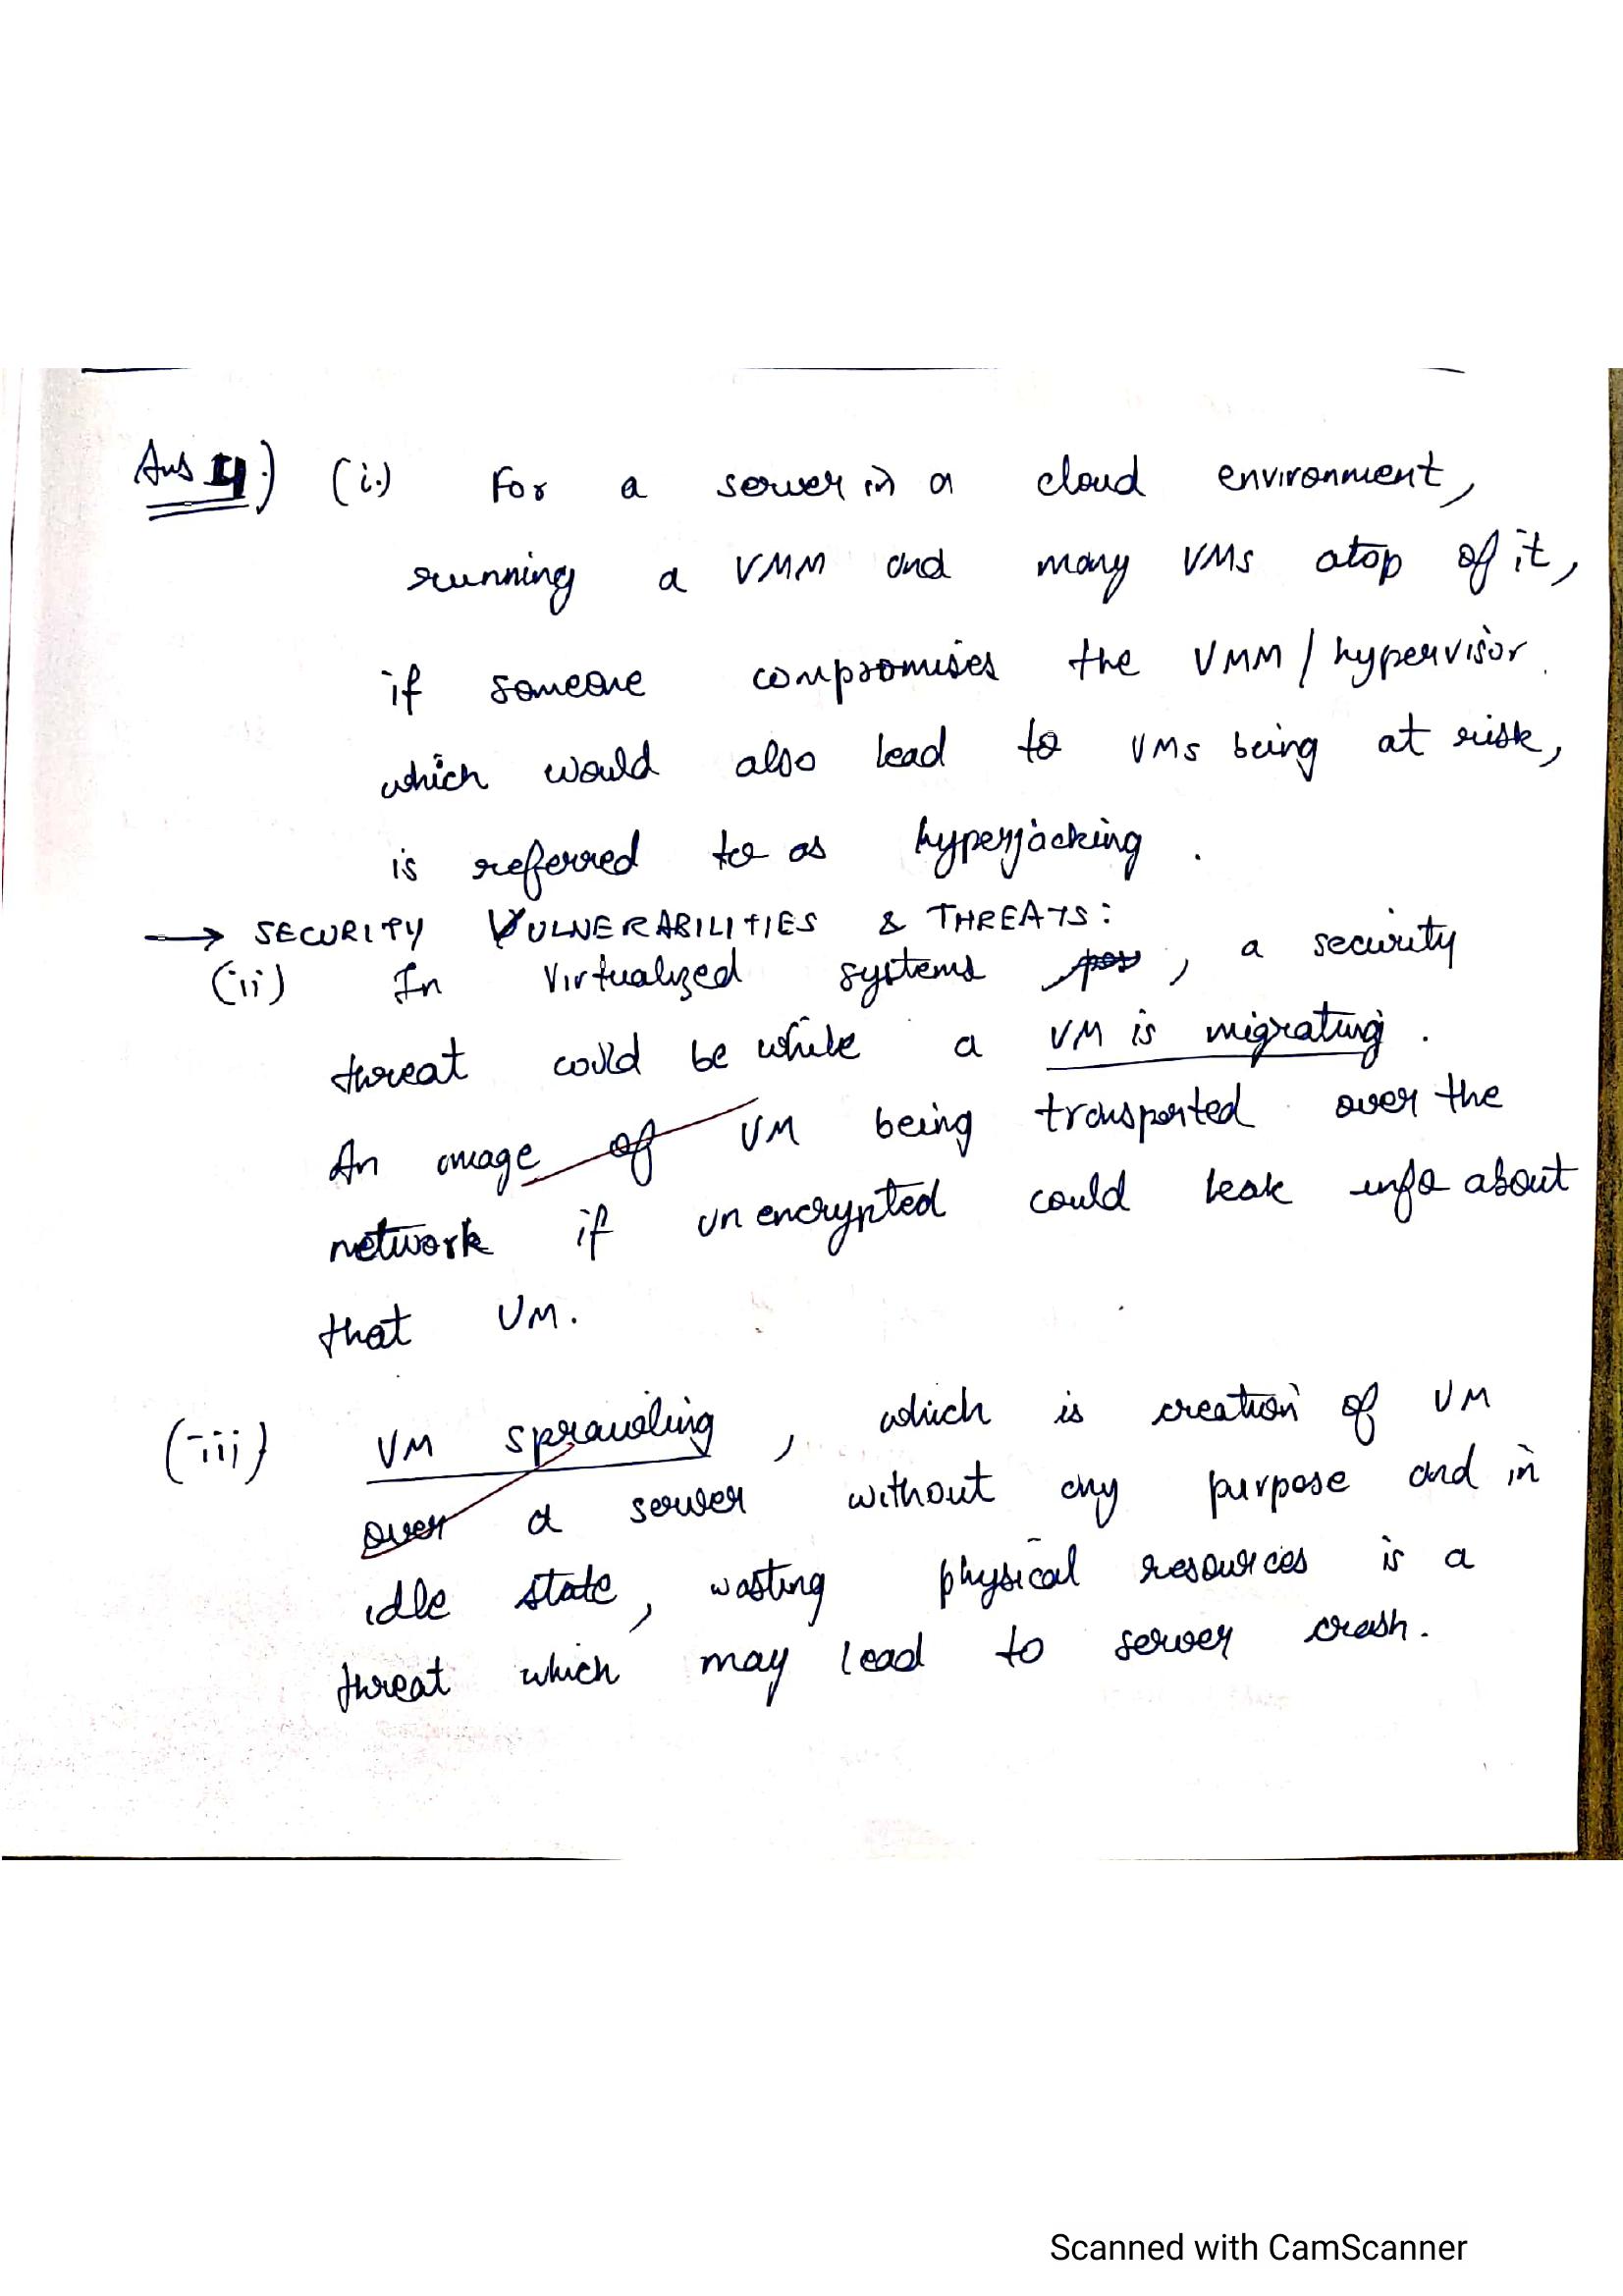 Ans 4.) (i.) For a server in a cloud environment,
running a VMM and many VMs atop of it,
if someone compromises the VMM / hypervisor.
which would also lead to VMs being at risk,
is referred to as hyperjacking.
→ SECURITY VULNERABILITIES & THREATS:
(ii) In Virtualized systems , a security
threat could be while a VM is migrating.
An image of VM being transported over the
network if unencrypted could leak info about
that VM.
(iii) VM sprawling, which is creation of VM
over a server without any purpose and in
idle state, wasting physical resources is a
threat which may lead to server crash.
Scanned with CamScanner